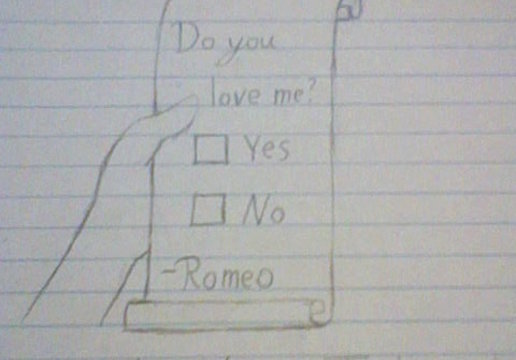 Do you
love me?
Yes
No
-Romeo